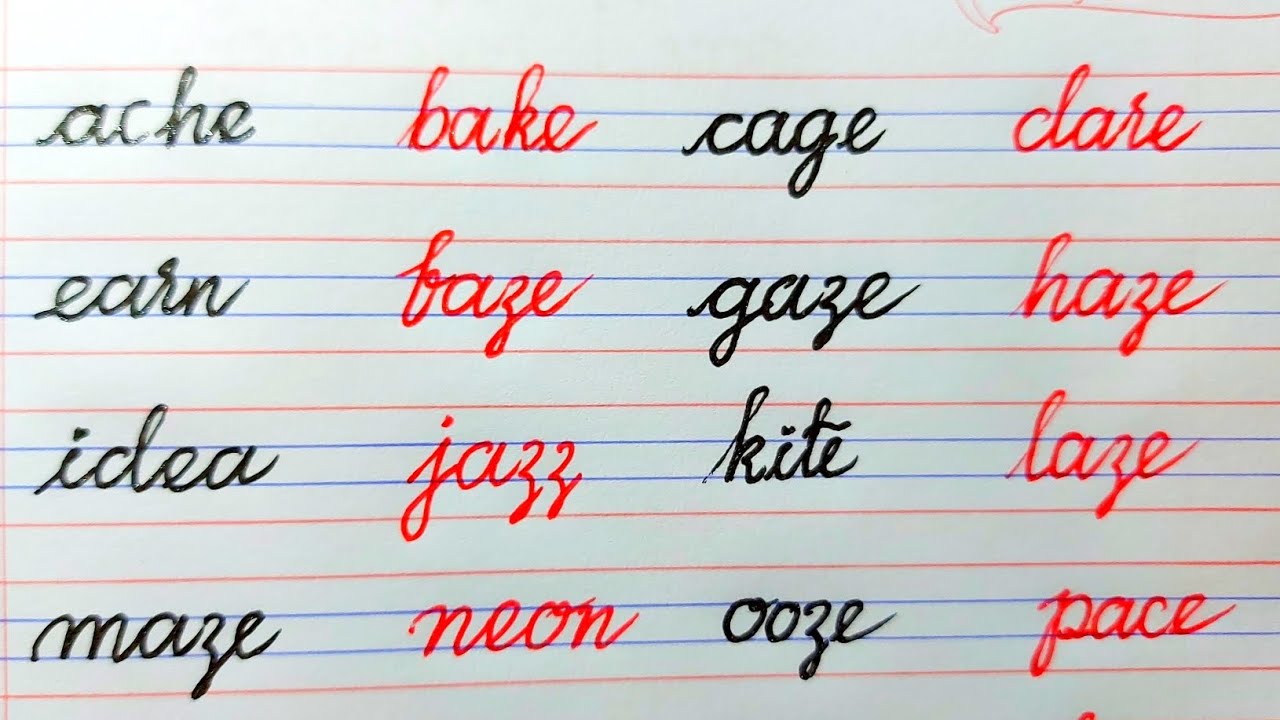 ache bake cage dare
earn baze gaze haze
idea jazz kite laze
maze neon ooze pace